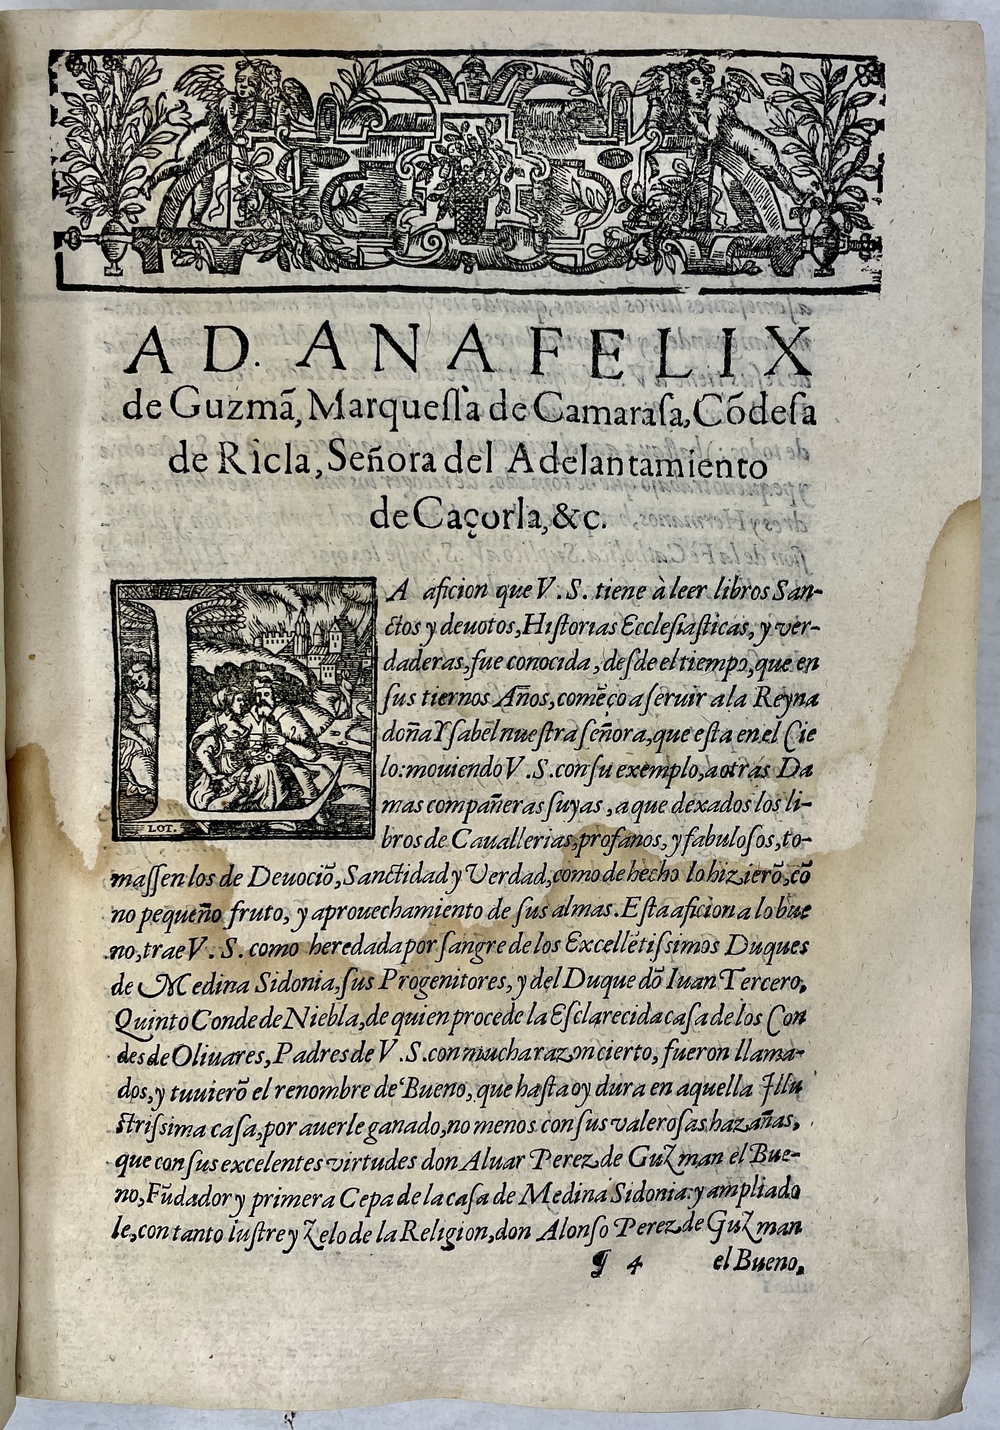 A D. ANA FELIX
de Guzmã, Marquessa de Camarasa, Cõdesa
de Ricla, Señora del Adelantamiento
de Caçorla, &c.
LA aficion que V. S. tiene à leer libros San-
ctos y deuotos, Historias Ecclesiasticas, y ver-
daderas, fue conocida, desde el tiempo, que en
sus tiernos Años, comẽço a seruir a la Reyna
doña Ysabel nuestra señora, que esta en el Cie
lo: mouiendo V. S. con su exemplo, a otras Da
mas compañeras suyas, a que dexados los li-
bros de Cauallerias, profanos, y fabulosos, to-
LOT.
massen los de Deuociõ, Sanctidad y Verdad, como de hecho lo hizierõ, cõ
no pequeño fruto, y aprouechamiento de sus almas. Esta aficion a lo bue
no, trae V. S. como heredada por sangre de los Excellẽtissimos Duques
de Medina Sidonia, sus Progenitores, y del Duque dõ Iuan Tercero,
Quinto Conde de Niebla, de quien procede la Esclarecida casa de los Con
des de Oliuares, Padres de V. S. con mucha razon cierto, fueron llama-
dos, y tuuierõ el renombre de Bueno, que hasta oy dura en aquella Illu
strissima casa, por auerle ganado, no menos con sus valerosas hazañas,
que con sus excelentes virtudes don Aluar Perez de Guzman el Bue-
no, Fũdador y primera Cepa de la casa de Medina Sidonia: y ampliado
le, con tanto lustre y zelo de la Religion, don Alonso Perez de Guzman
¶ 4 el Bueno,